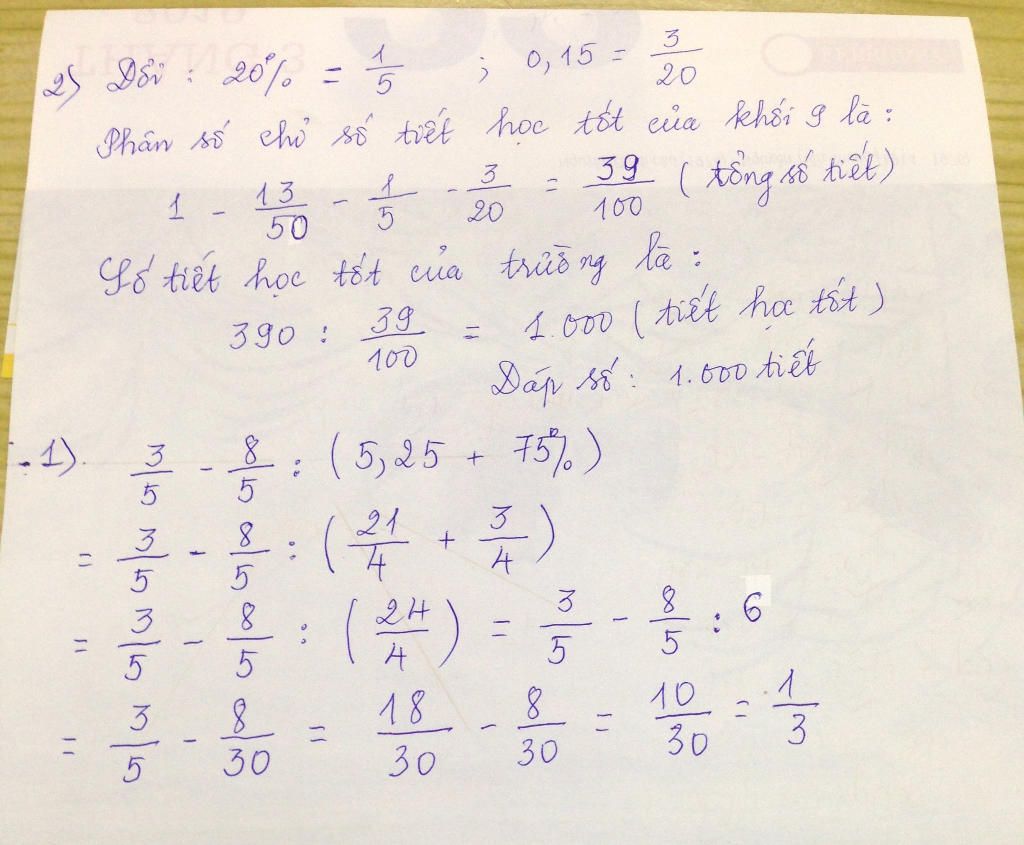 2) Đổi : 20% = 1/5 ; 0,15 = 3/20
Phân số chỉ số tiết học tốt của khối 9 là :
1 - 13/50 - 1/5 - 3/20 = 39/100 ( tổng số tiết)
Số tiết học tốt của trường là :
390 : 39/100 = 1.000 ( tiết học tốt )
Đáp số : 1.000 tiết
1). 3/5 - 8/5 : ( 5,25 + 75% )
= 3/5 - 8/5 : ( 21/4 + 3/4 )
= 3/5 - 8/5 : ( 24/4 ) = 3/5 - 8/5 : 6
= 3/5 - 8/30 = 18/30 - 8/30 = 10/30 = 1/3